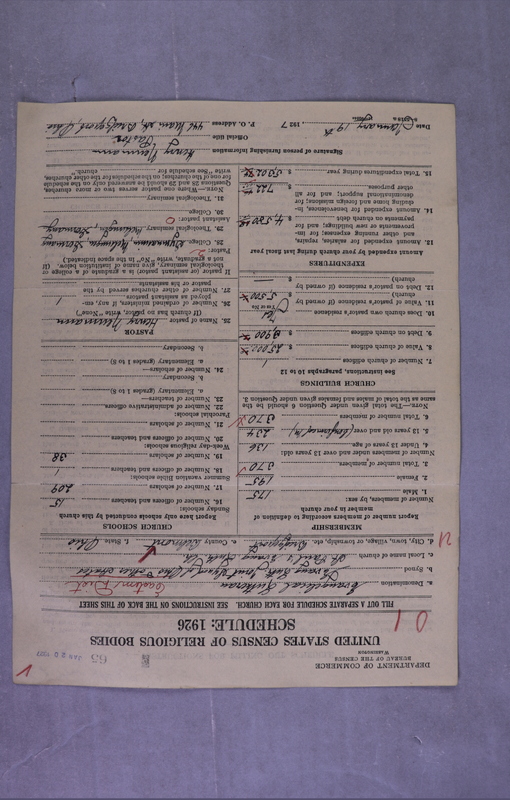 DEPARTMENT OF COMMERCE
BUREAU OF THE CENSUS
WASHINGTON
UNITED STATES CENSUS OF RELIGIOUS BODIES
SCHEDULE: 1926
FILL OUT A SEPARATE SCHEDULE FOR EACH CHURCH. SEE INSTRUCTIONS ON THE BACK OF THIS SHEET
a. Denomination Evangelical Lutheran
Eastern Dist
b. Synod Ev. Luth. Joint Synod of Ohio & other states
c. Local name of church St. Paul's Evang. Luth. Ch.
d. City, town, village, or township, etc. Bridgeport
e. County Belmont f. State Ohio
MEMBERSHIP
Report number of members according to definition of member in your church
Number of members, by sex:
1. Male 175
2. Female 195
3. Total number of members 370
Number of members under and over 13 years old:
4. Under 13 years of age 136
5. 13 years old and over (Confirmed m.) 234
6. Total number of members 370
Note.—The total given under Question 6 should be the same as the total of males and females given under Question 3.
CHURCH BUILDINGS
See instructions, paragraphs 10 to 12
7. Number of church edifices 1
8. Value of church edifices $
9. Debt on church edifices $
10. Does church own pastor's residence Yes
Yes or No
11. Value of pastor's residence (if owned by church) $
12. Debt on pastor's residence (if owned by church) $ —
EXPENDITURES
Amount expended by your church during last fiscal year
13. Amount expended for salaries, repairs, and other running expense; for improvements or new building; and for payments on church debt $
14. Amount expended for benevolences, including home and foreign missions; for denominational support; and for all other purposes $
15. Total expenditures during year $
CHURCH SCHOOLS
Report here only schools conducted by this church
Sunday schools:
16. Number of officers and teachers 15
17. Number of scholars 209
Summer vacation Bible schools:
18. Number of officers and teachers 1
19. Number of scholars 38
Week-day religious schools:
20. Number of officers and teachers
21. Number of scholars
Parochial schools:
22. Number of administrative officers
23. Number of teachers—
a. Elementary (grades 1 to 8)
b. Secondary
24. Number of scholars—
a. Elementary (grades 1 to 8)
b. Secondary
PASTOR
25. Name of pastor Henry Neumann
(If church has no pastor, write "None")
26. Number of ordained ministers, if any, employed as assistant pastors 1
27. Number of other churches served by the pastor or his assistants
If pastor (or assistant pastor) is a graduate of a college or theological seminary, give name of institution below. (If not a graduate, write "No" in the space indicated.)
Pastor:
28. College
29. Theological seminary
Assistant pastor:
30. College
31. Theological seminary
Note.—When one pastor serves two or more churches, Questions 28 and 29 should be answered only on the schedule for one of the churches; on the schedules for the other churches, write "See schedule for church."
Signature of person furnishing information Henry Neumann
Official title Pastor
P. O. Address 446 Main St, Bridgeport, Ohio
Date January 19th 1927